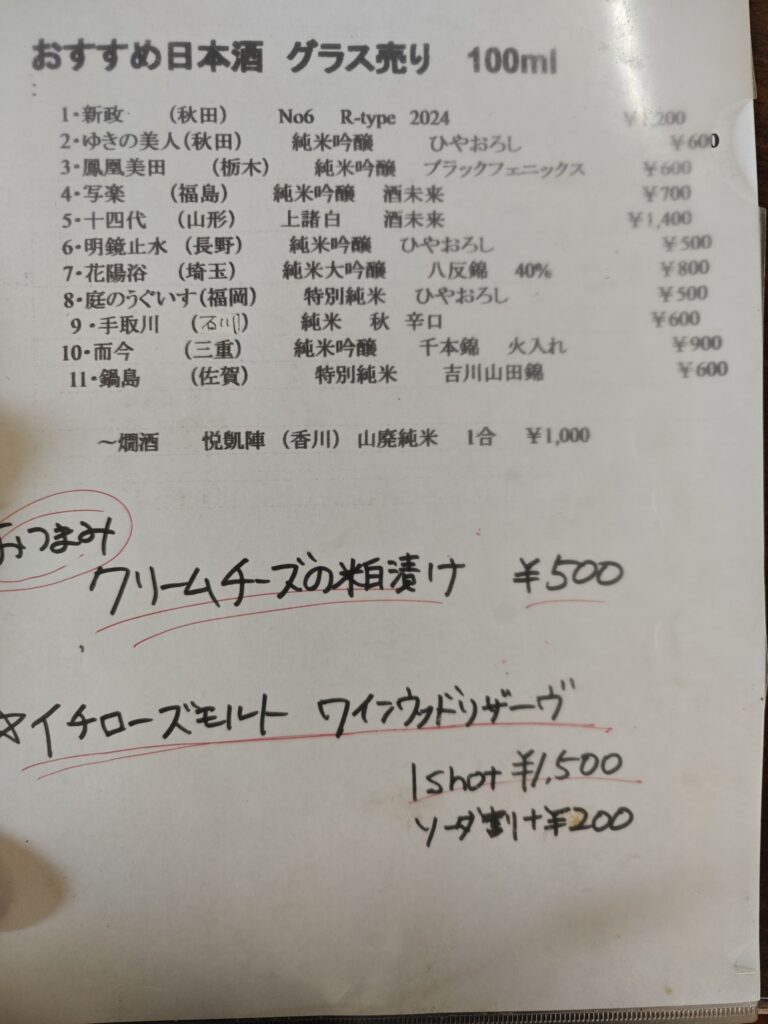 おすすめ日本酒 グラス売り 100ml
1・新政 (秋田) No6 R-type 2024 ¥1,200
2・ゆきの美人(秋田) 純米吟醸 ひやおろし ¥600
3・鳳凰美田 (栃木) 純米吟醸 ブラックフェニックス ¥600
4・写楽 (福島) 純米吟醸 酒未来 ¥700
5・十四代 (山形) 上諸白 酒未来 ¥1,400
6・明鏡止水 (長野) 純米吟醸 ひやおろし ¥500
7・花陽浴 (埼玉) 純米大吟醸 八反錦 40% ¥800
8・庭のうぐいす(福岡) 特別純米 ひやおろし ¥500
9・手取川 (石川) 純米 秋 辛口 ¥600
10・而今 (三重) 純米吟醸 千本錦 火入れ ¥900
11・鍋島 (佐賀) 特別純米 吉川山田錦 ¥600
~燗酒 悦凱陣 (香川) 山廃純米 1合 ¥1,000
おつまみ
クリームチーズの粕漬け ¥500
☆イチローズモルト ワインウッドリザーヴ
1shot ¥1,500
ソーダ割+¥200